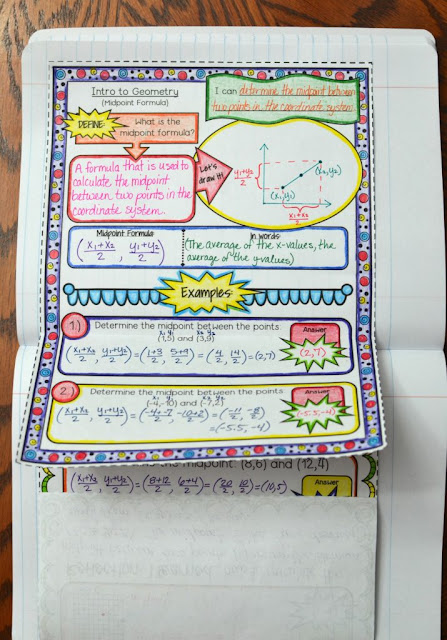 Intro to Geometry
(Midpoint Formula)
I can determine the midpoint between
two points in the coordinate system.
DEFINE:
What is the
midpoint formula?
A formula that is used to
calculate the midpoint
between two points in the
coordinate system.
Let's
draw it!
y₁+y₂
2
(x₁,y₁)
(x₂,y₂)
x₁+x₂
2
Midpoint Formula
(x₁+x₂/2, y₁+y₂/2)
In words
(The average of the x-values, the
average of the y-values)
Examples:
1.)
Determine the midpoint between the points
x₁ y₁ x₂ y₂
(1,5) and (3,9)
(x₁+x₂/2, y₁+y₂/2) = (1+3/2, 5+9/2) = (4/2, 14/2) = (2,7)
Answer
(2,7)
2.)
Determine the midpoint between the points
x₁ y₁ x₂ y₂
(-4,-10) and (-7,2)
(x₁+x₂/2, y₁+y₂/2) = (-4+-7/2, -10+2/2) = (-11/2, -8/2)
= (-5.5, -4)
Answer
(-5.5,-4)
the midpoint: (8,6) and (12,4)
(x₁+x₂/2, y₁+y₂/2) = (8+12/2, 6+4/2) = (20/2, 10/2) = (10,5)
Answer